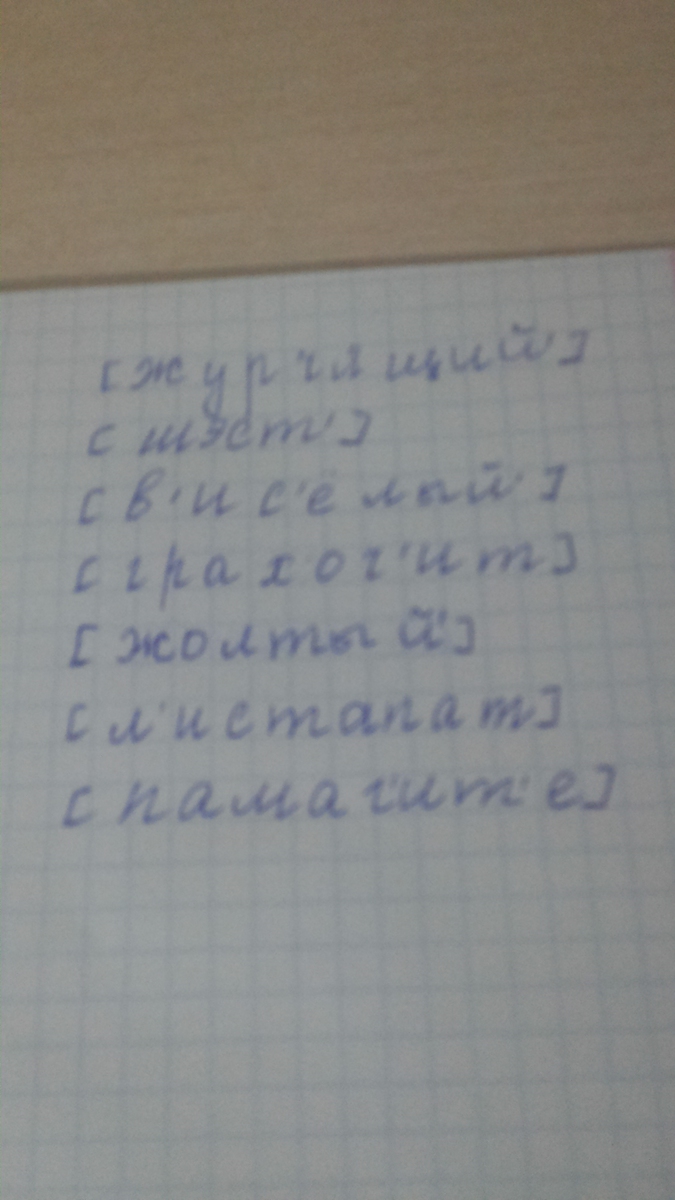 [журчящий']
[шэст']
[в'ис'ёлый']
[грахоч'ит]
[жолтый']
[л'истапат]
[памаг'ит'е]